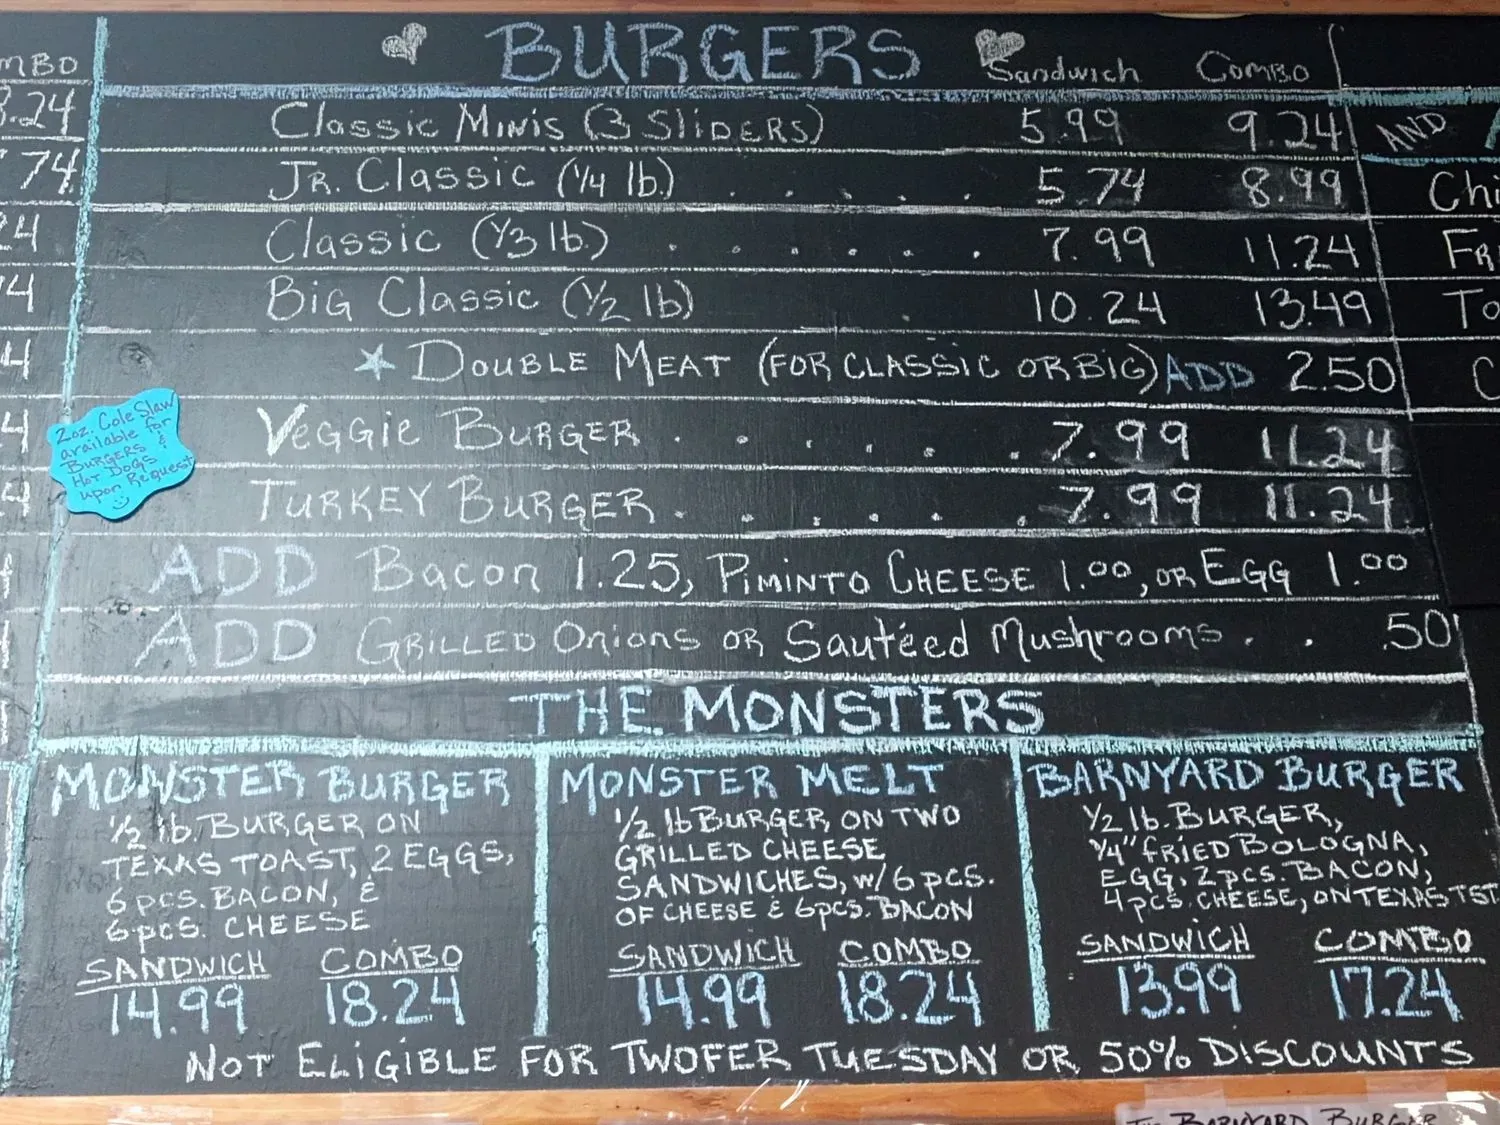 BURGERS Sandwich Combo
Classic Minis (3 Sliders) 5.99 9.24
Jr. Classic (1/4 lb.) . . . . 5.74 8.99
Classic (1/3 lb.) . . . . . 7.99 11.24
Big Classic (1/2 lb) . . 10.24 13.49
★ Double Meat (for Classic or Big) ADD 2.50
Veggie Burger . . . . . . 7.99 11.24
Turkey Burger . . . . . . 7.99 11.24
ADD Bacon 1.25, Piminto Cheese 1.00, or Egg 1.00
ADD Grilled Onions or Sautéed Mushrooms . . .50
2oz. Cole Slaw
available for
Burgers &
Hot Dogs
upon Request
THE MONSTERS
MONSTER BURGER
1/2 lb. BURGER ON
TEXAS TOAST, 2 EGGS,
6 pcs. BACON, &
6 pcs. CHEESE
SANDWICH COMBO
14.99 18.24
MONSTER MELT
1/2 lb BURGER, ON TWO
GRILLED CHEESE
SANDWICHES, w/ 6 pcs.
OF CHEESE & 6 pcs. BACON
SANDWICH COMBO
14.99 18.24
BARNYARD BURGER
1/2 lb. BURGER,
1/4" FRIED BOLOGNA,
EGG, 2 pcs. BACON,
4 pcs. CHEESE, ON TEXAS TST
SANDWICH COMBO
13.99 17.24
NOT ELIGIBLE FOR TWOFER TUESDAY OR 50% DISCOUNTS
AND
BARNYARD BURGER